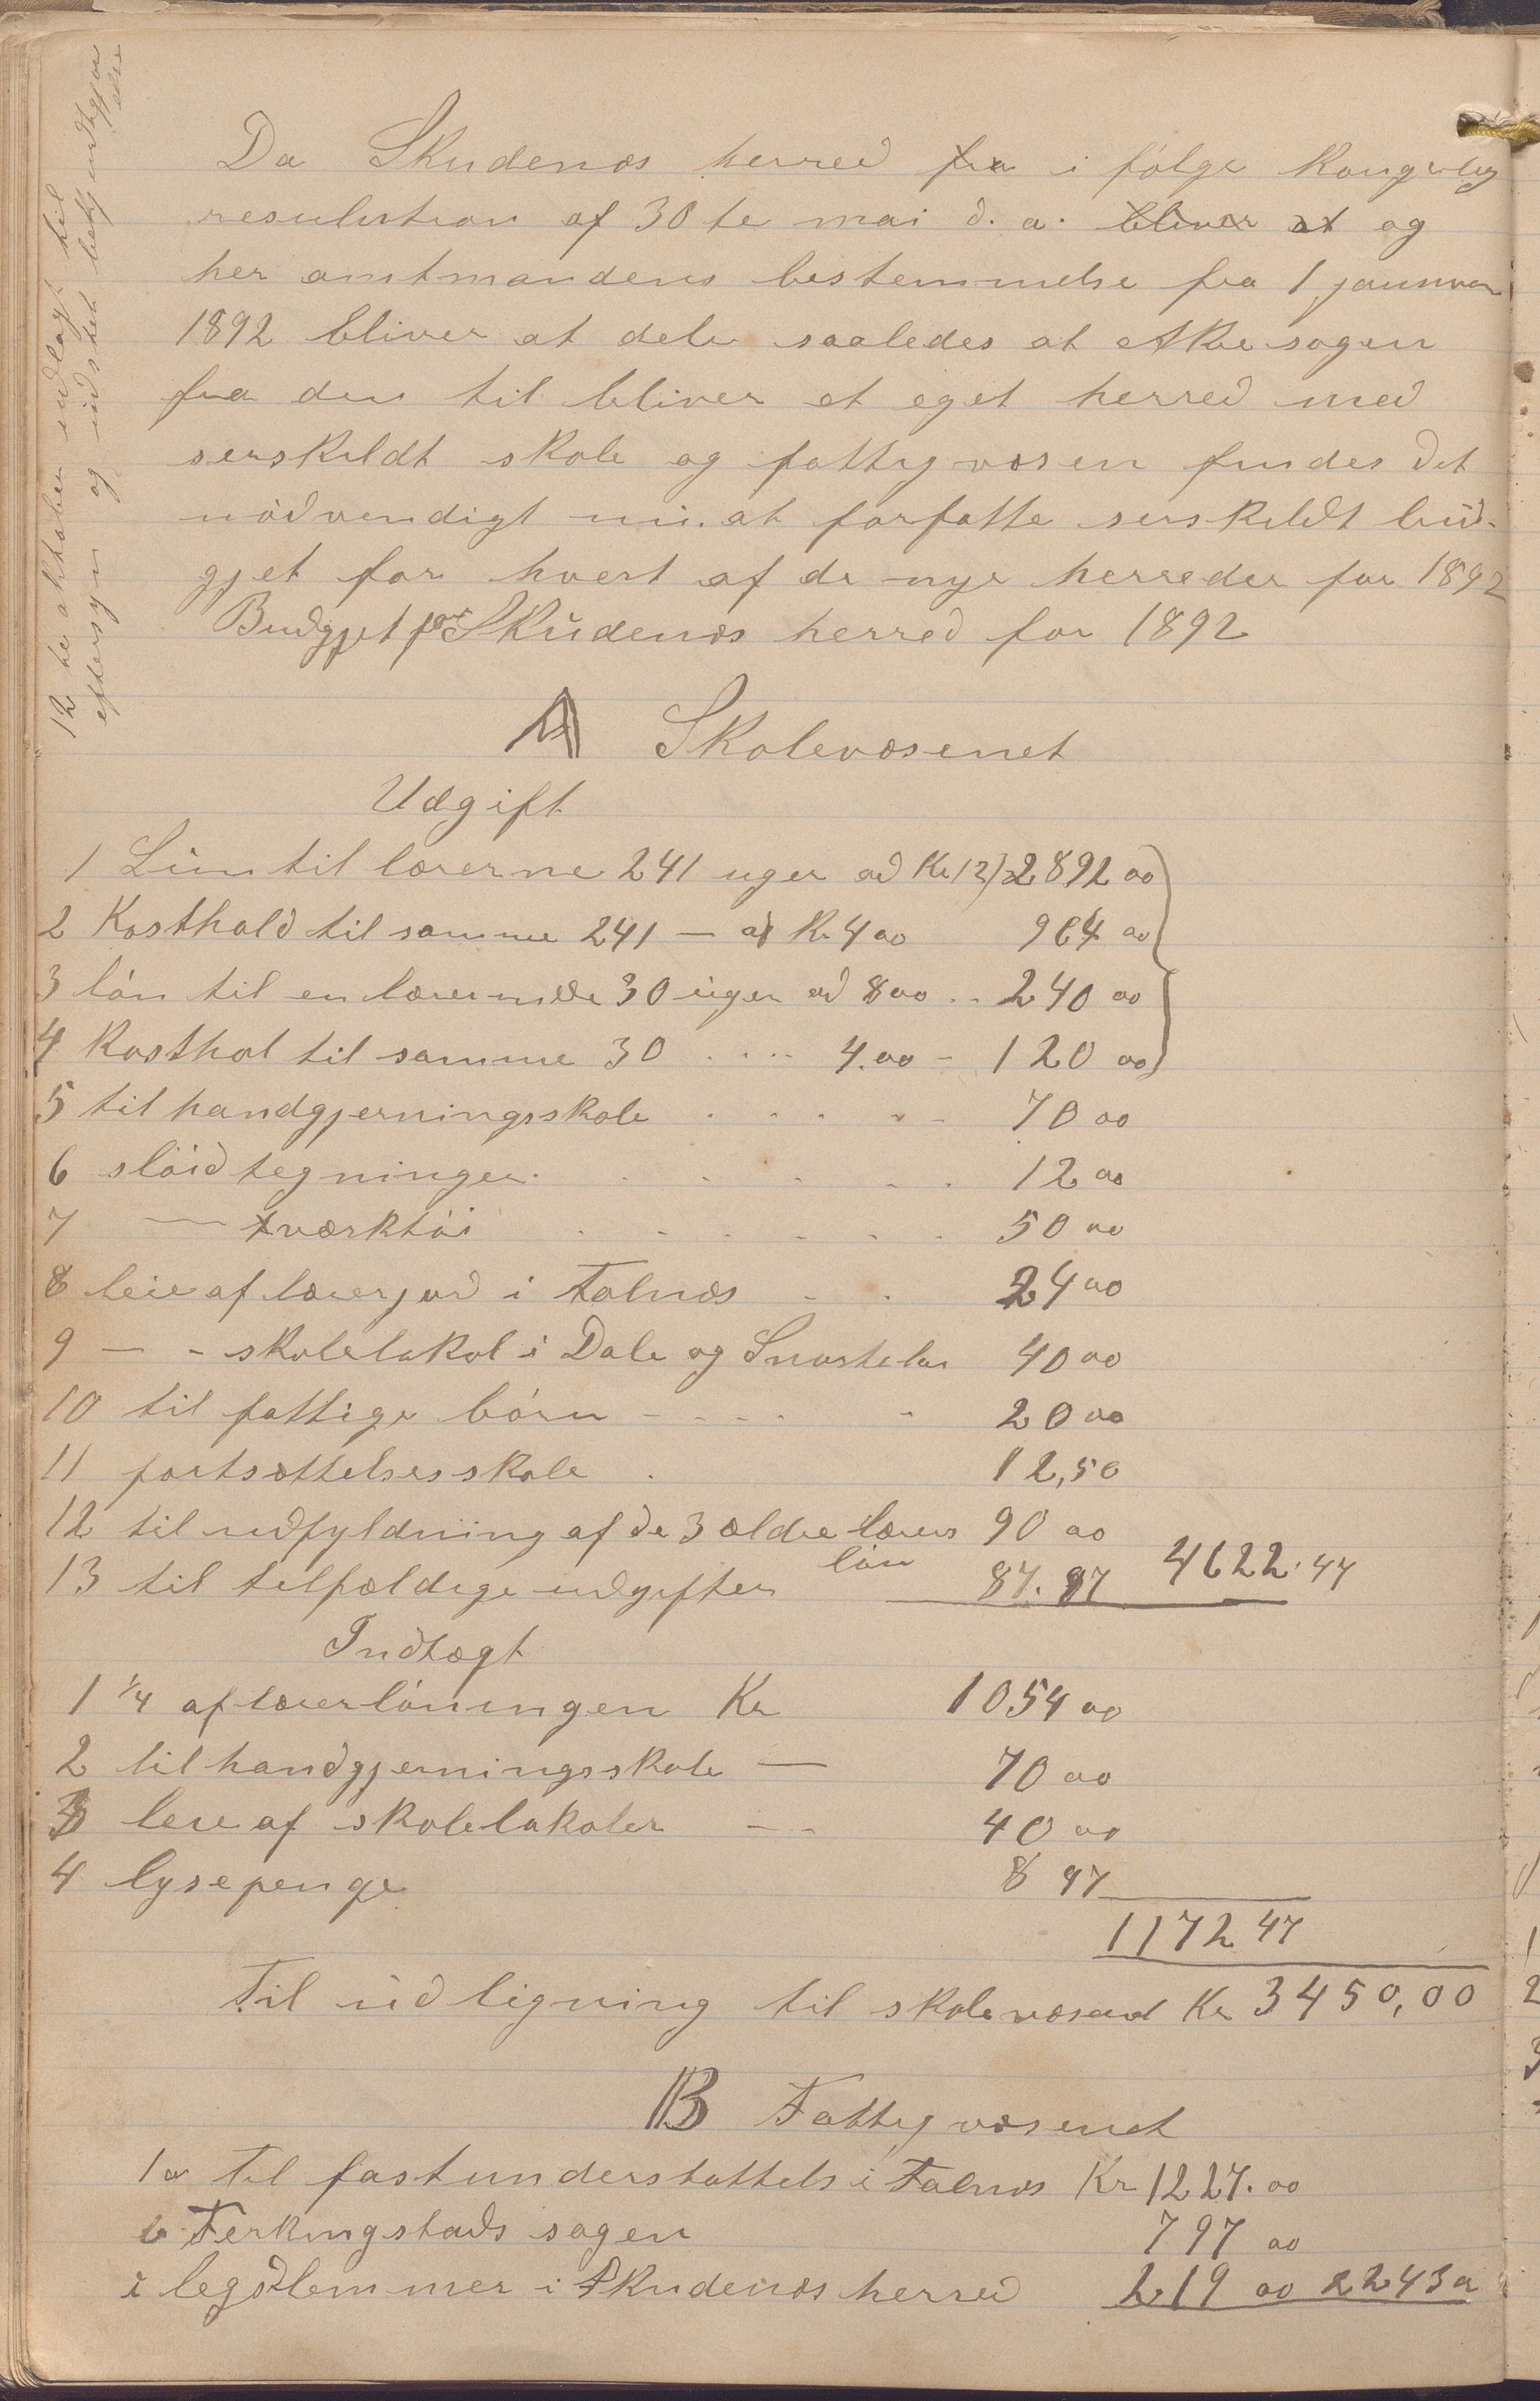 12te oktober udlagt til
eftersyn og uidstet bekjendtgjør
else
Da Skudenæs herred fra i følge Kongelig
resulution af 30te mai d. a. bliver at og
her amtmandens bestemmelse fra 1 januar
1892 bliver at dele saaledes at Akresogen
fra den til bliver et eget herred med
serskildt skole og fattigvæsen findes det
nødvendigt nu at forfatte serskildt bud-
gjet for hvert af de nye herreder for 1892
Budgjet for Skudenæs herred for 1892
A Skolevæsenet
Udgift
1 Lön til lærerne 241 uger ad Kr 12 2892 00
2 Kosthold til samme 241 — ad Kr 4 00 964 00
3 lön til en lærerinde 30 uger ad 8 00 .. 240 00
4 Kosthol til samme 30 .... 4.00 - 120 00
5 til handgjerningsskole . . . . . 70 00
6 slöidtegninger . . . . . . 12 00
7 — værktöi . . . . . . 50 00
8 leie af lærerjord i Falnæs . . 24 00
9 — - skolelokal i Dale og Snørtelan 40 00
10 til fattige börn - - - - - 20 00
11 fortsættelsesskole . 12,50
12 til udfyldning af de 3 ældre lærers lön 90 00
13 til telfældige udgifter 87.97 4622.47
Indtægt
1 1/4 af lærerlöningen Kr 1054 00
2 til handgjerningsskole — 70 00
3 leie af skolelokaler — 40 00
4 lysepenge 8 47
1172 47
Til udligning til skolevæsened Kr 3450,00
B Fattigvæsenet
1 a Til fast understøttels i Falnæs Kr 1227.00
b Ferkingstads sogen 797 00
i legdslemmer i Skudenæs herred 219 00 2243 00